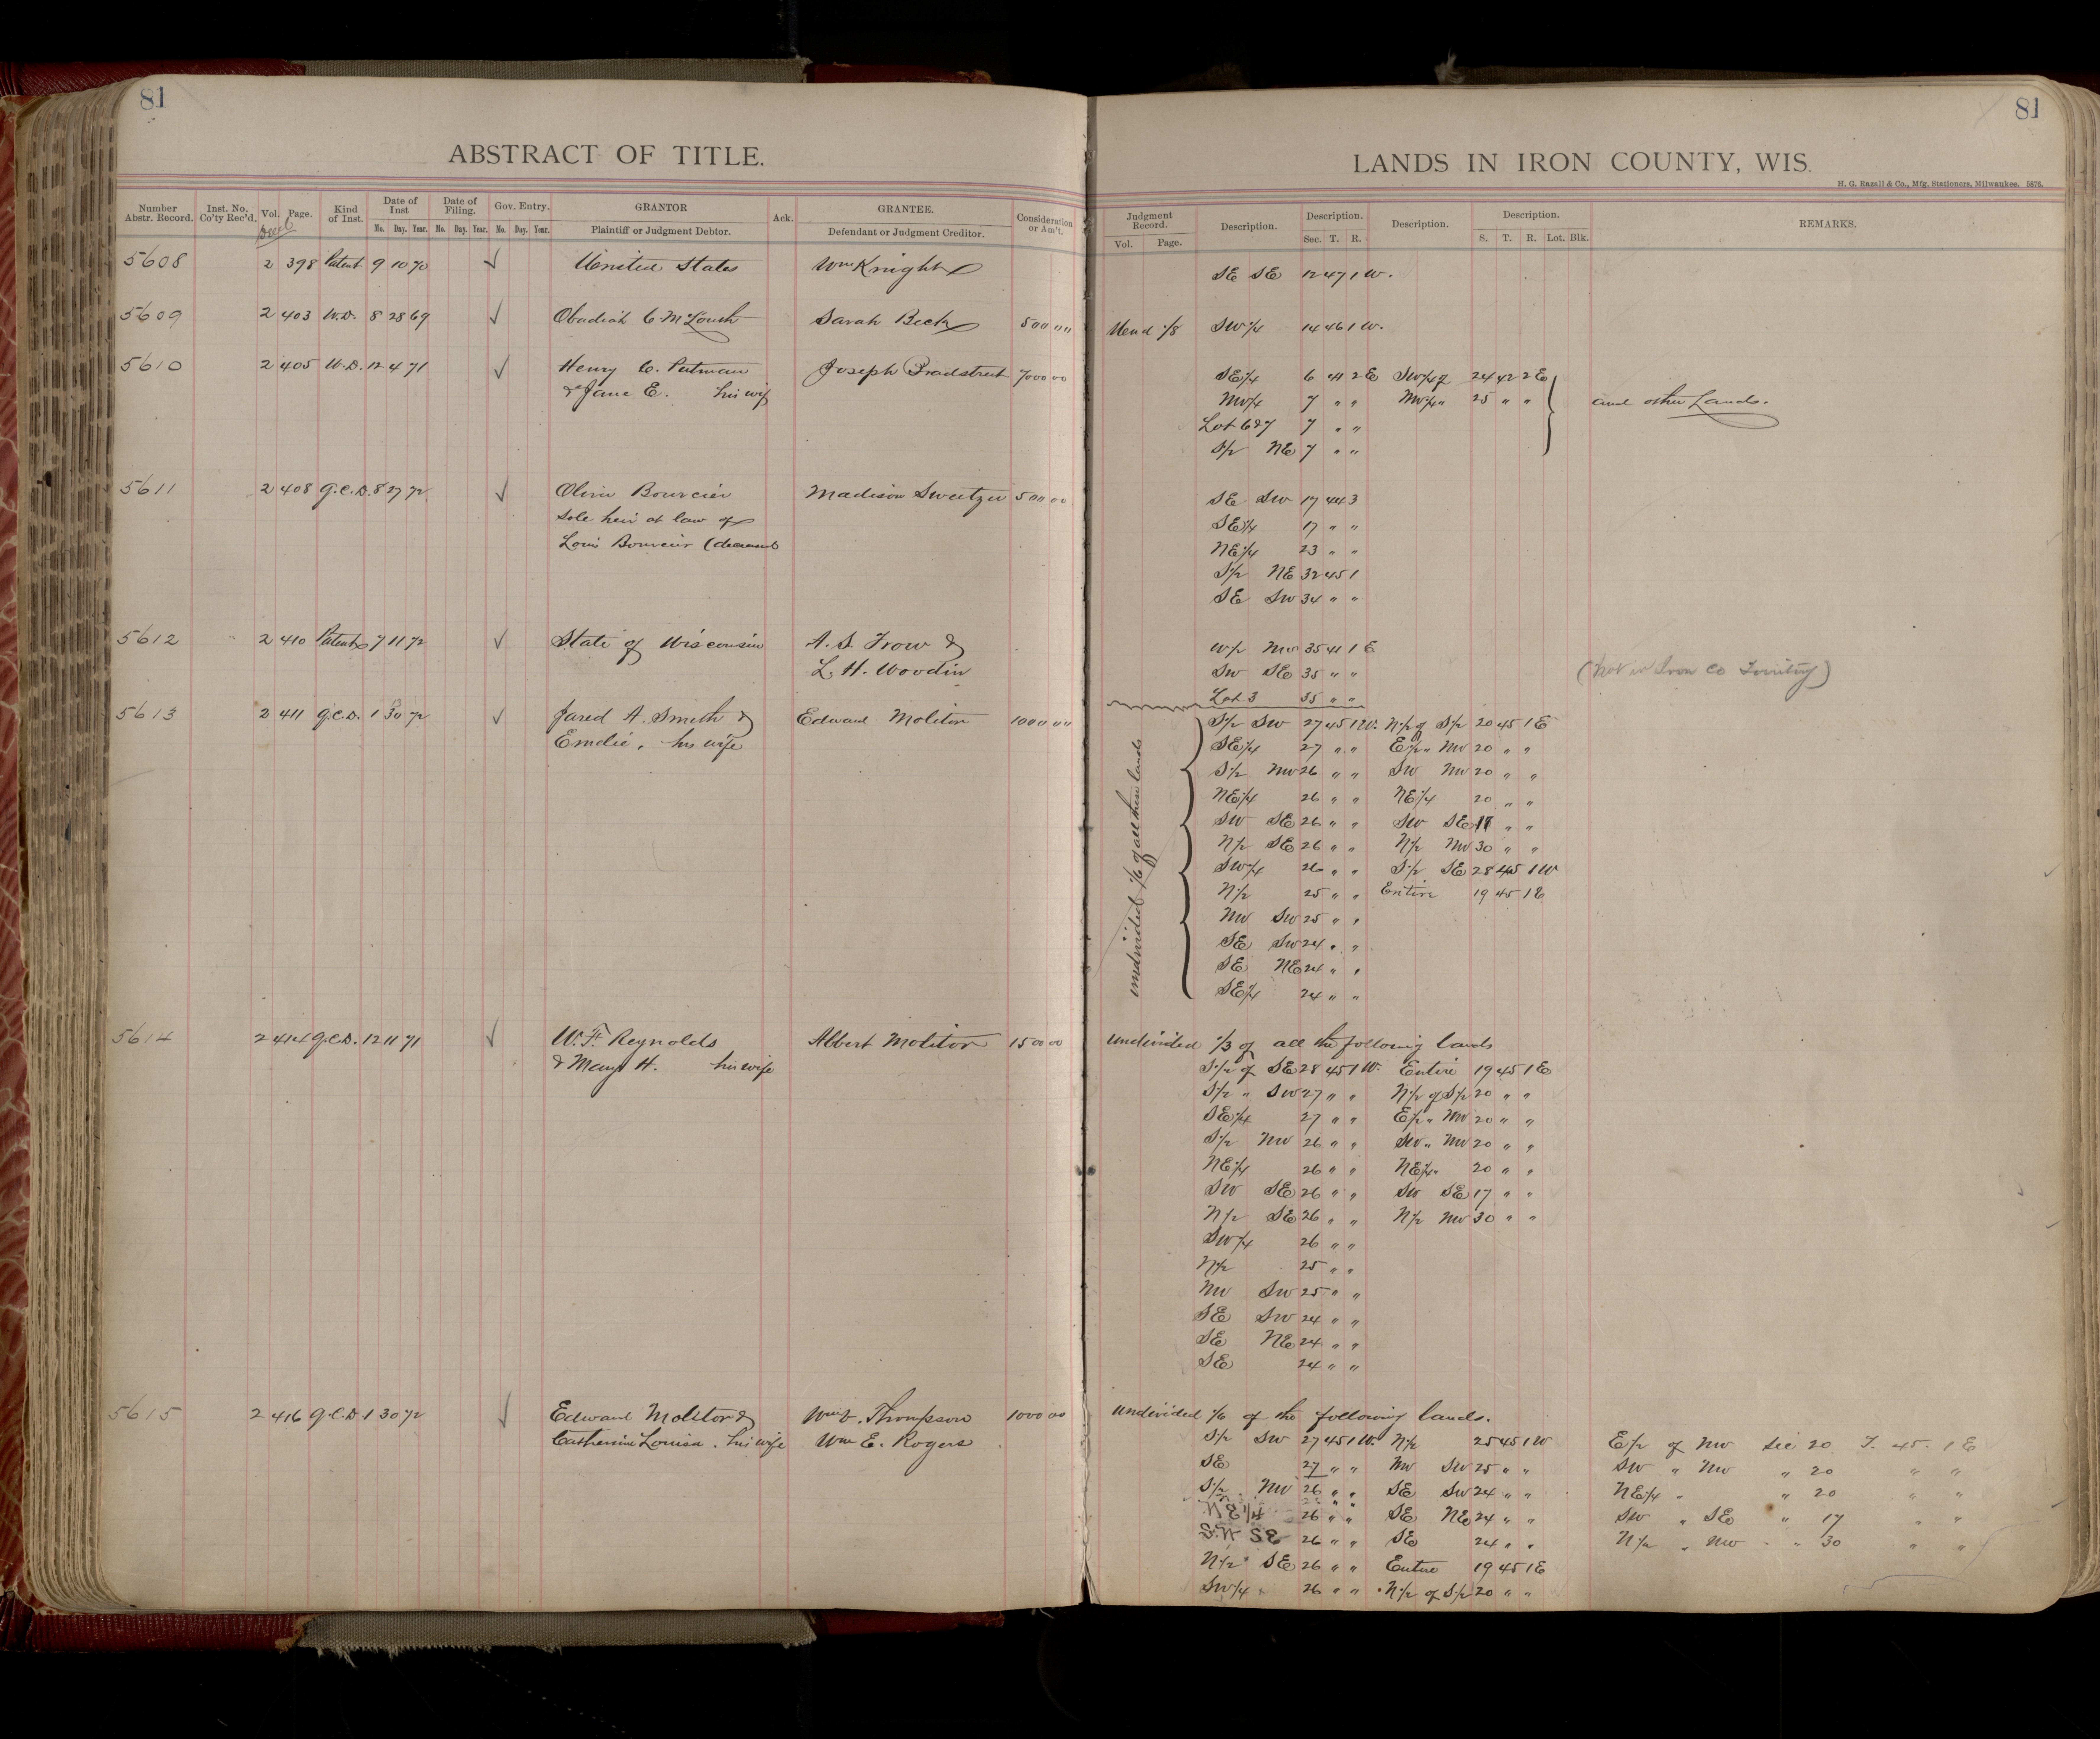 81
ABSTRACT OF TITLE.
Number Abstr. Record. Inst. No. Co'ty Rec'd. Vol. Page. Kind of Inst. Date of Inst Mo. Day. Year. Date of Filing. Mo. Day. Year. Gov. Entry. Mo. Day. Year. GRANTOR Plaintiff or Judgment Debtor. Ack. GRANTEE. Defendant or Judgment Creditor. Consideration or Am't.
Deed
5608 2 398 Patent 9 10 70 ✓ United States Wm Knight
5609 2 403 W.D. 8 28 69 ✓ Obadiah C. McLouth Sarah Beck 500 00
5610 2 405 W.D. 12 4 71 ✓ Henry C. Putman Joseph Bradstreet 7000 00
& Jane E. his wife
5611 2 408 Q.C.D. 8 27 72 ✓ Oliver Bourcier Madison Sweetzer 500 00
sole heir at law of
Louis Bourcier (deceased
5612 " 2 410 Patent 7 11 72 ✓ State of Wisconsin A. S. Trow &
L. H. Woodin
5613 2 411 Q.C.D. 1 30 72 ✓ Jared A. Smith & Edward Molitor 1000 00
Emelie, his wife
5614 2 414 Q.C.D. 12 11 71 ✓ W. F. Reynolds Albert Molitor 1500 00
& Mary H. his wife
5615 2 416 Q.C.D 1 30 72 ✓ Edward Molitor & Wm V. Thompson 1000 00
Catherine Louisa. his wife Wm E. Rogers
81
LANDS IN IRON COUNTY, WIS.
H. G. Razall & Co., Mfg. Stationers, Milwaukee. 5876.
Judgment Record. Vol. Page. Description. Description. Sec. T. R. Description. Description. S. T. R. Lot. Blk. REMARKS.
SE SE 12 47 1 W.
Und 1/8 SW 1/4 14 46 1 W.
SE 1/4 6 41 2 E SW 1/4 of 24 42 2 E
NW 1/4 7 " " NW 1/4 " 25 " " and other Lands.
Lot 6 & 7 7 " "
S 1/2 NE 7 " "
SE SW 17 44 3
SE 1/4 17 " "
NE 1/4 23 " "
S 1/2 NE 32 45 1
SE SW 34 " "
W 1/2 NW 35 41 1 E
SW SE 35 " " (Not in Iron Co Territory)
Lot 3 35 " "
undivided 1/6 of all these lands
S 1/2 SW 27 45 1 W. N 1/2 of S 1/2 20 45 1 E
SE 1/4 27 " " E 1/2 " NW 20 " "
S 1/2 NW 26 " " SW NW 20 " "
NE 1/4 26 " " NE 1/4 20 " "
SW SE 26 " " SW SE 17 " "
N 1/2 SE 26 " " N 1/2 NW 30 " "
SW 1/4 26 " " S 1/2 SE 28 45 1 W
N 1/2 25 " " Entire 19 45 1 E
NW SW 25 " "
SE SW 24 " "
SE NE 24 " "
SE 1/4 24 " "
undivided 1/3 of all the following lands
S 1/2 of SE 28 45 1 W. Entire 19 45 1 E
S 1/2 " SW 27 " " N 1/2 of S 1/2 20 " "
SE 1/4 27 " " E 1/2 " NW 20 " "
S 1/2 NW 26 " " SW " NW 20 " "
NE 1/4 26 " " NE 1/4 " 20 " "
SW SE 26 " " SW SE 17 " "
N 1/2 SE 26 " " N 1/2 NW 30 " "
SW 1/4 26 " "
N 1/2 25 " "
NW SW 25 " "
SE SW 24 " "
SE NE 24 " "
SE 24 " "
undivided 1/6 of the following lands.
S 1/2 SW 27 45 1 W. N 1/2 25 45 1 W E 1/2 of NW Sec 20 T. 45. 1 E
SE 27 " " NW SW 25 " " SW " NW " 20 " "
S 1/2 NW 26 " " SE SW 24 " " NE 1/4 " " 20 " "
NE 1/4 26 " " SE NE 24 " " SW " SE " 17 " "
S.W SE 26 " " SE 24 " " N 1/2 " NW " 30 " "
N 1/2 SE 26 " " Entire 19 45 1 E
SW 1/4 26 " " N 1/2 of S 1/2 20 " "